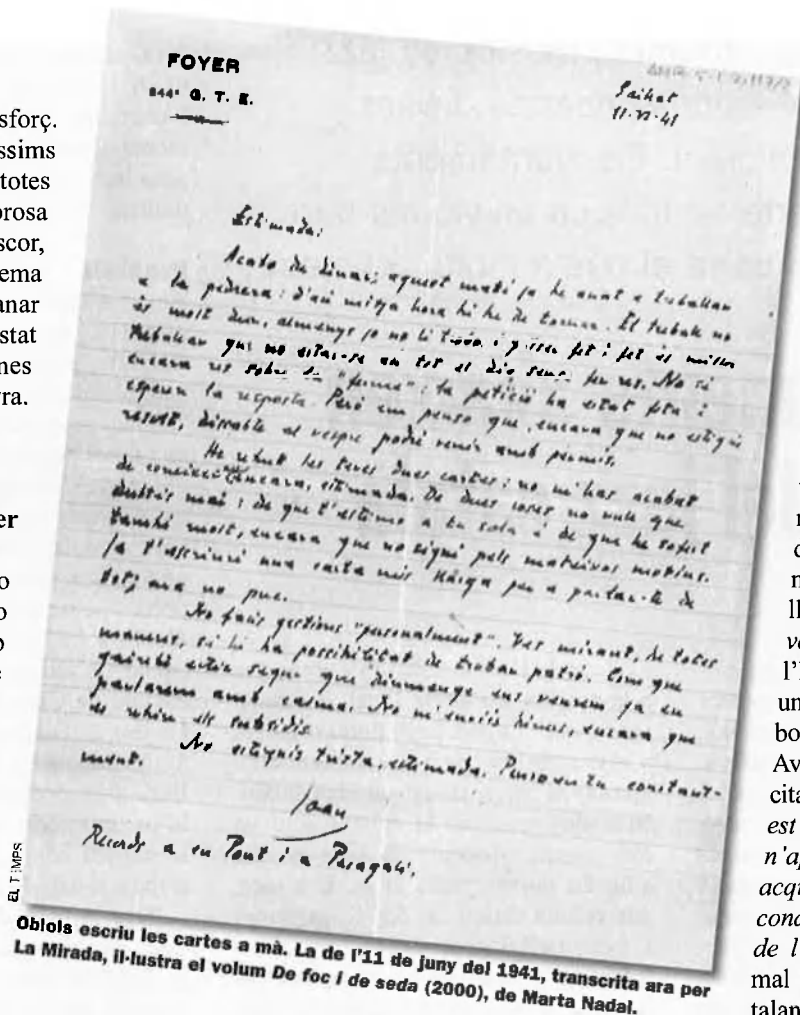 sforç.
ssims
totes
orosa
scor,
ema
anar
stat
nes
ra.
er
FOYER
844e G. T. E.
Sailhat
11-VI-41
Estimada:
Acabo de dinar; aquest matí ja he anat a treballar
a la pedrera: d'ací mitja hora hi he de tornar. El treball no
és molt dur, almenys jo no li trobo, i pisser fet i fet és millor
treballar que no estar-se an tot el dia sense fer res. No sé
encara res sobre la "ferme": la petició ha estat feta i
esperen la resposta. Però em penso que, encara que no estigui
resolt, dissabte al vespre podré venir amb permís.
He rebut les teves dues cartes: no m'has acabat
de conèixer encara, estimada. De dues coses no vull que
dubtis mai: de que t'estimo a tu sola i de que he sofert
també molt, encara que no sigui pels mateixos motius.
Ja t'escriuré una carta més llarga per a parlar-te de
tot; ara no puc.
No facis gestions "personalment". Ves mirant, de totes
maneres, si hi ha possibilitat de trobar patró. Com que
gairebé estic segur que diumenge ens veurem ja en
parlarem amb calma. No m'enviïs diners, encara que
es rebin els subsidis.
No estiguis trista, estimada. Penso en tu constant-
ment.
Joan
Records a en Pont i a
EL TEMPS
Obiols escriu les cartes a mà. La de l'11 de juny del 1941, transcrita ara per
La Mirada, il·lustra el volum De foc i de seda (2000), de Marta Nadal.
ll
l'I
un
bo
Av
cita
est
n'ap
acqu
cond
de l'
mal
talan